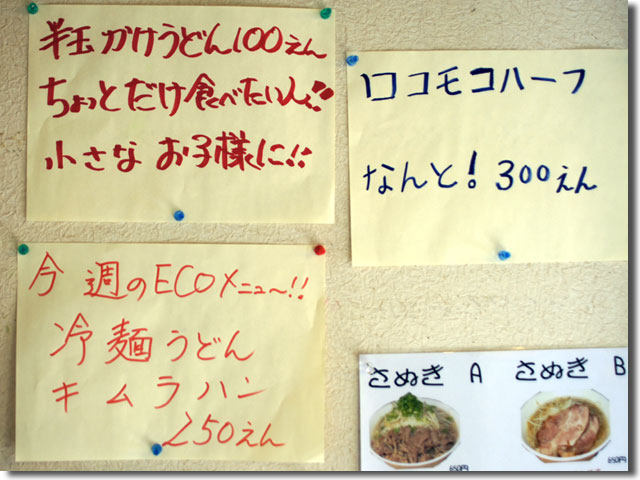 半玉かけうどん100えん
ちょっとだけ食べたい人!!
小さな お子様に!!
ロコモコハーフ
なんと! 300えん
今週のECOメニュ〜!!
冷麺うどん
キムラハン
250えん
さぬき A
さぬき B
650円
650円